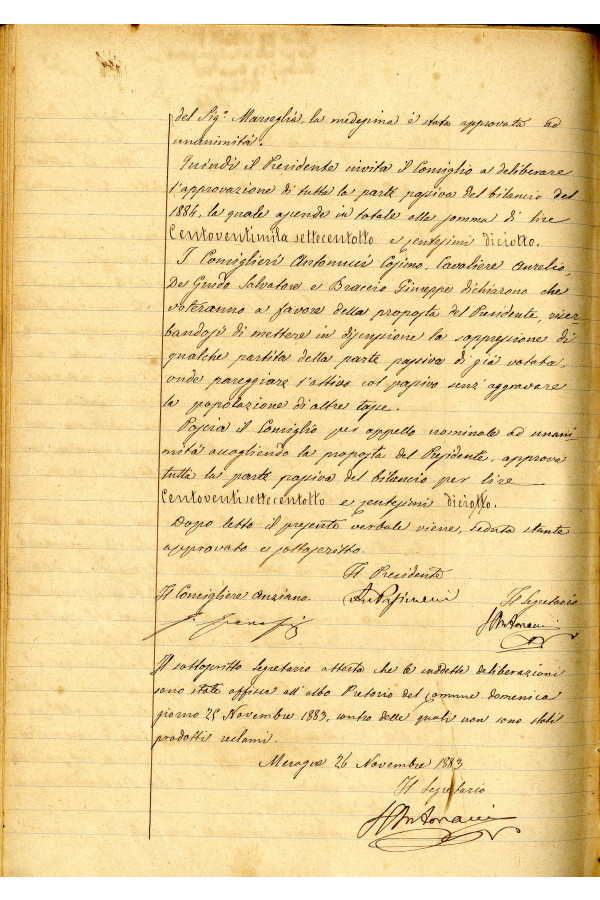 del Sig.r Marseglia, la medesima è stata approvata ad
unanimità.
Quindi il Presidente invita il Consiglio a deliberare
l'approvazione di tutta la parte passiva del bilancio del
1884, la quale ascende in totale alla somma di lire
Centoventimila settecentotto e centesimi diciotto.
I Consiglieri Antonucci Cosimo, Cavaliere Aurelio,
De Guido Salvatore e Braccio Giuseppe dichiarono che
voteranno a favore della proposta del Presidente, riser
bandosi di mettere in discussione la soppressione di
qualche partita della parte passiva di già votata,
onde pareggiare l'attivo col passivo senz'aggravare
la popolazione di altre tasse.
Poscia il Consiglio per appello nominale ad unani
mità accogliendo la proposta del Presidente, approva
tutta la parte passiva del bilancio per lire
Centoventisettecentotto e centesimi diciotto.
Dopo letto il presente verbale viene, seduta stante
approvato e sottoscritto.
Il Presidente
Il Consigliere Anziano.
Il Segretario
Il sottoscritto Segretario attesta che le suddette deliberazioni
sono state affisse all'albo Pretorio del Comune domenica
giorno 25 Novembre 1883, contro delle quali non sono stati
prodotti reclami.
Mesagne 26 Novembre 1883
Il Segretario